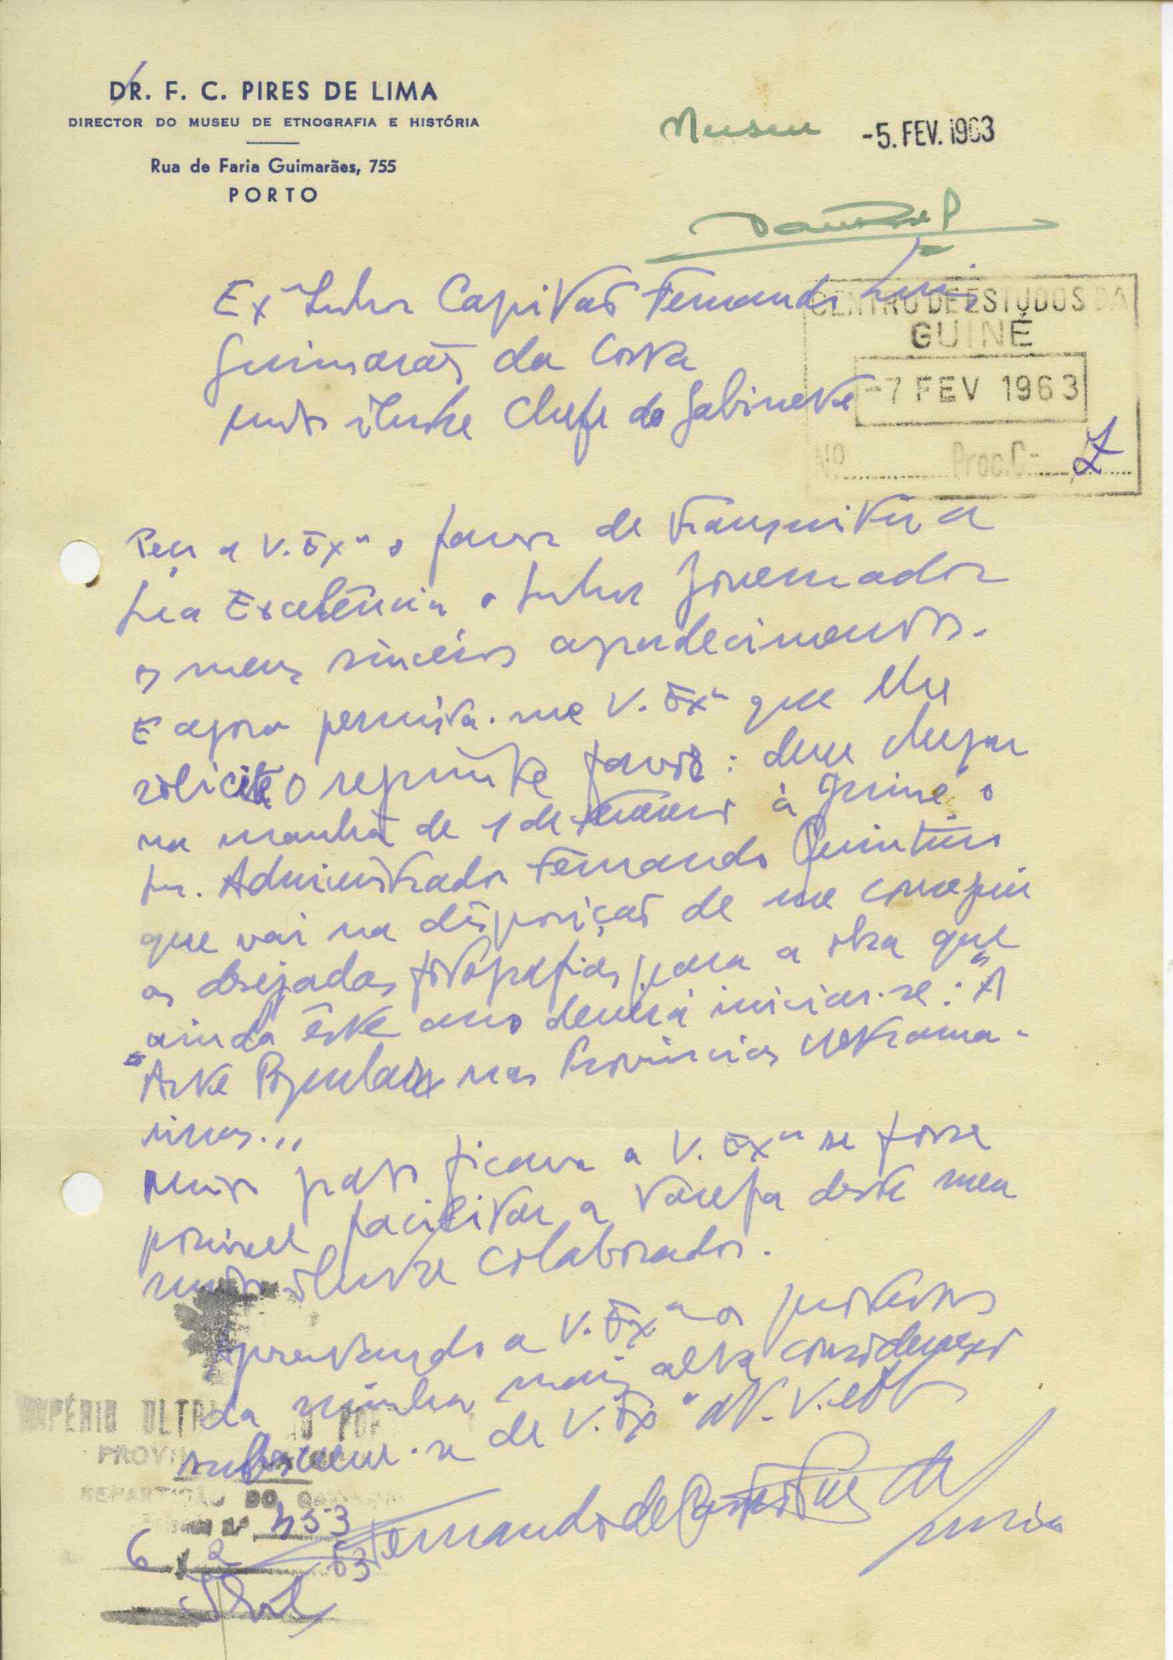 DR. F. C. PIRES DE LIMA
DIRECTOR DO MUSEU DE ETNOGRAFIA E HISTÓRIA
Rua de Faria Guimarães, 755
PORTO
Museu
-5. FEV. 1963
Exmo Senhor Capitão Fernando Luis
Guimarães da Costa
muito ilustre Chefe do Gabinete
CENTRO DE ESTUDOS DA
GUINÉ
-7 FEV 1963
Nº Proc. C-
Peço a V. Exa o favor de transmitir a
Sua Excelência o Senhor Governador
os meus sinceros agradecimentos.
E agora permita-me V. Exa que lhe
solicite o seguinte favor: deve chegar
na manhã de 1 de à Guiné o
Sr. Administrador Fernando Quintino
que vai na disposição de me conseguir
as desejadas fotografias para a obra que
ainda êste ano deverá iniciar-se: "A
Arte Popular nas Províncias Ultrama-
rinas...
Muito grato ficava a V. Exa se fosse
possível facilitar a tarefa deste meu
muito ilustre colaborador.
Apresentando a V. Exa os protestos
da minha mais alta consideração
subscreve-se de V. Exa
Fernando de Castro Pires de
Lima
PROVÍN
REPARTIÇÃO DO GABIN
453
6 2 63